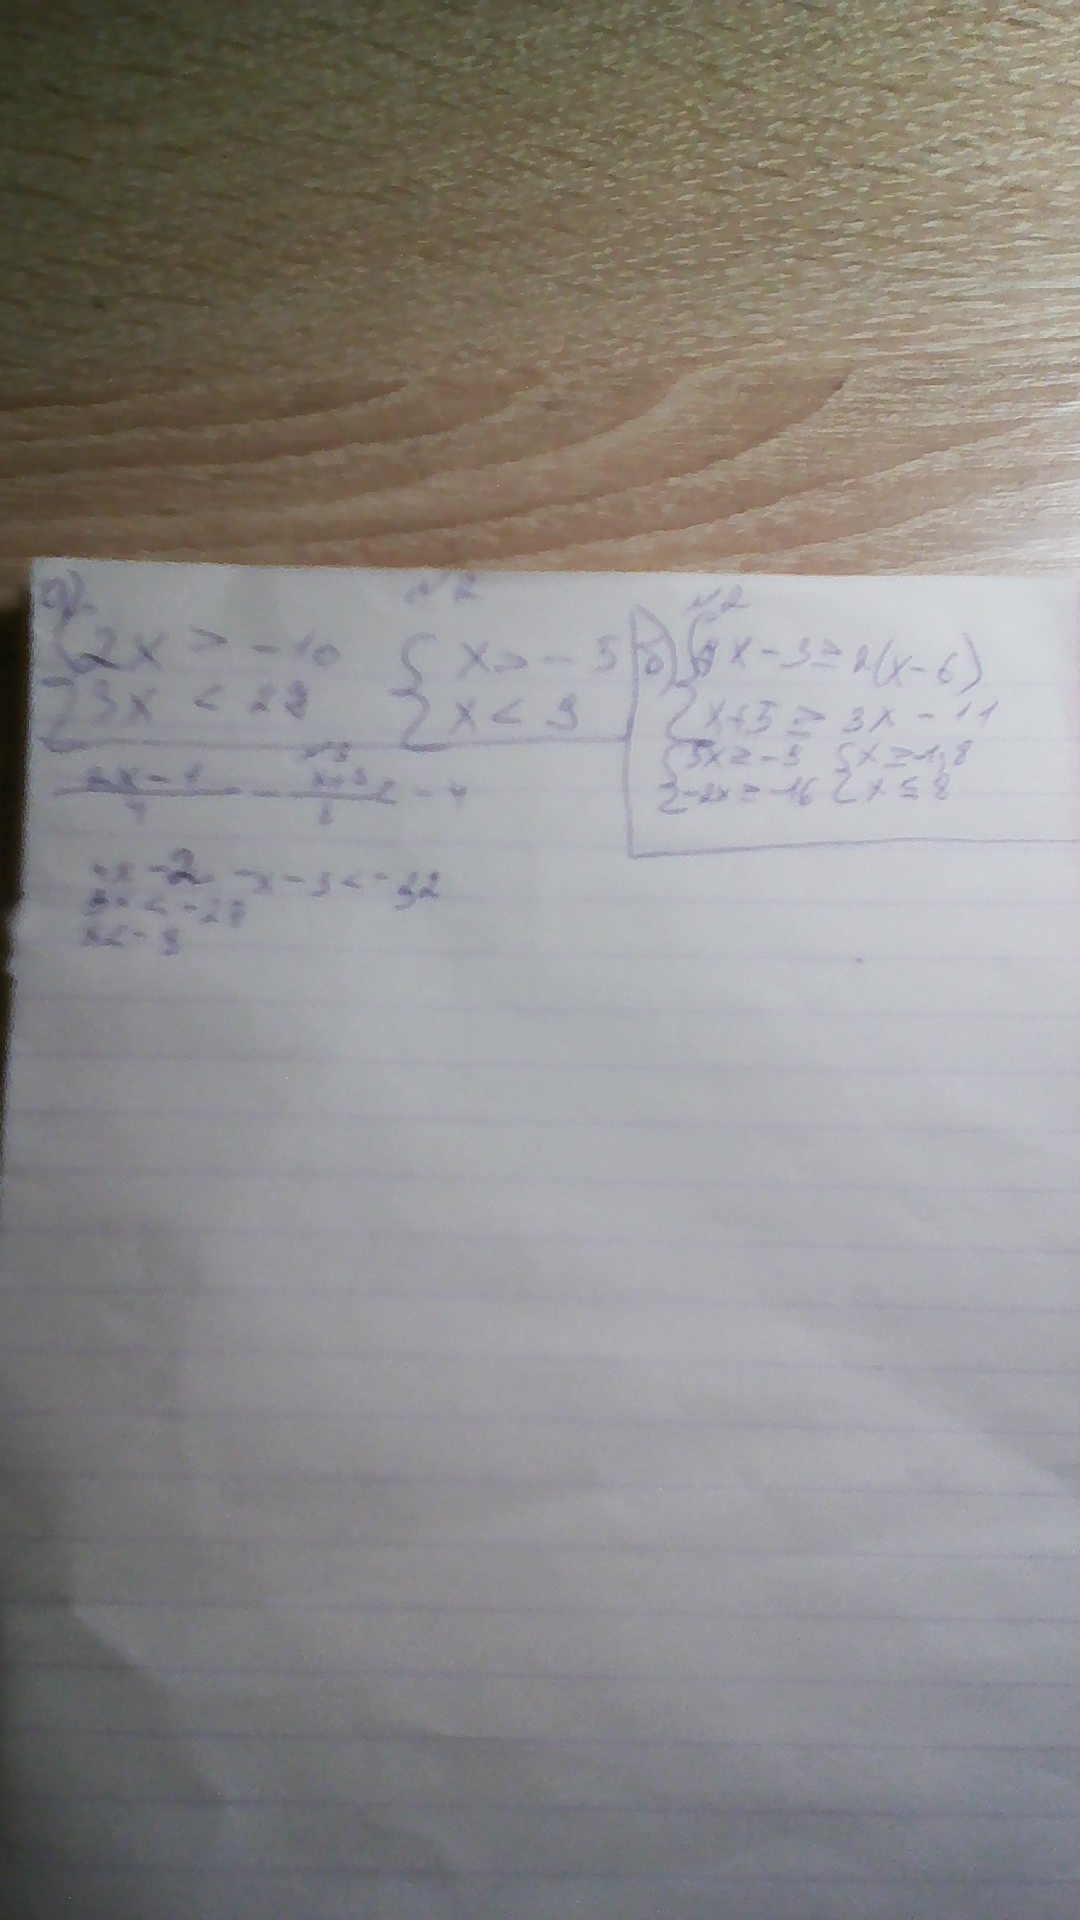 а)
№2
{ 2x > -10
3x < 27
{ x > -5
x < 9
№2
б) { 7x - 3 ≥ 2(x - 6)
x + 5 ≥ 3x - 11
{ 5x ≥ -9 { x ≥ -1,8
-2x ≥ -16 x ≤ 8
№3
(2x - 1)/4 - (x+3)/8 < -4
4x - 2 - x - 3 < -32
3x < -27
x < -9